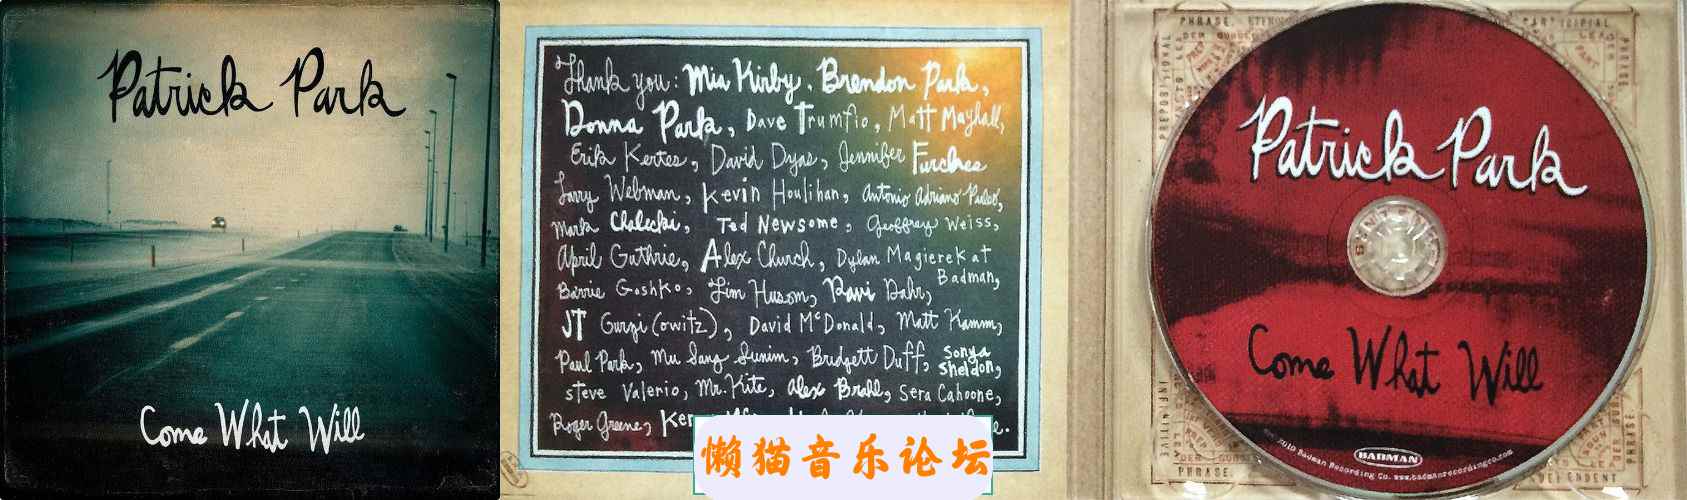 Patrick Park
Come What Will
Thank you: Mia Kirby, Brendon Park,
Donna Park, Dave Trumfio, Matt Mayhall,
Erik Kertes, David Dyas, Jennifer Furches
Larry Webman, Kevin Houlihan, Antonio Adriano Puleo,
Mark Chalecki, Ted Newsome, Geoffrey Weiss,
April Guthrie, Alex Church, Dylan Magierek at
Badman,
Barrie Goshko, Jim Huson, Ravi Dahr,
JT Gurzi(owitz), David McDonald, Matt Kamm,
Paul Park, Mu Sang Sunim, Bridgett Duff, Sonya
Sheldon,
Steve Valerio, Mr. Kite, Alex Brahl, Sera Cahoone,
Roger Greene,
懒猫音乐论坛
PHRASE.
PARTICIPIAL
PREPOSITIONAL
Patrick Park
Come What Will
2010 Badman Recording Co. www.badmanrecordingco.com
BADMAN
PHRASE
INDEPENDENT
PHRASE